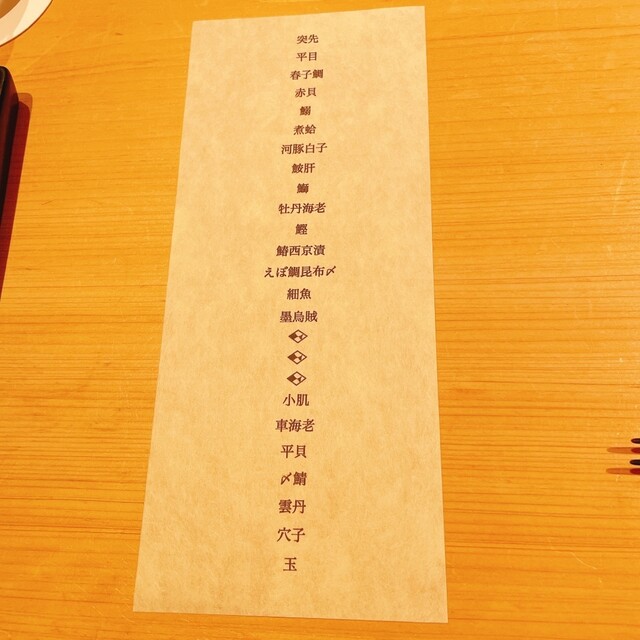 突先
平目
春子鯛
赤貝
鰯
煮蛤
河豚白子
鮟肝
鰤
牡丹海老
鰹
鰆西京漬
えぼ鯛昆布〆
細魚
墨烏賊
小肌
車海老
平貝
〆鯖
雲丹
穴子
玉